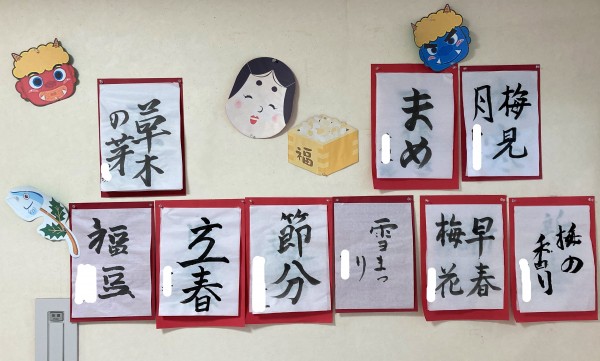 草木
の芽
福
まめ
梅見
月
福豆
立春
節分
雪まつ
り
早春
梅花
梅の
香り